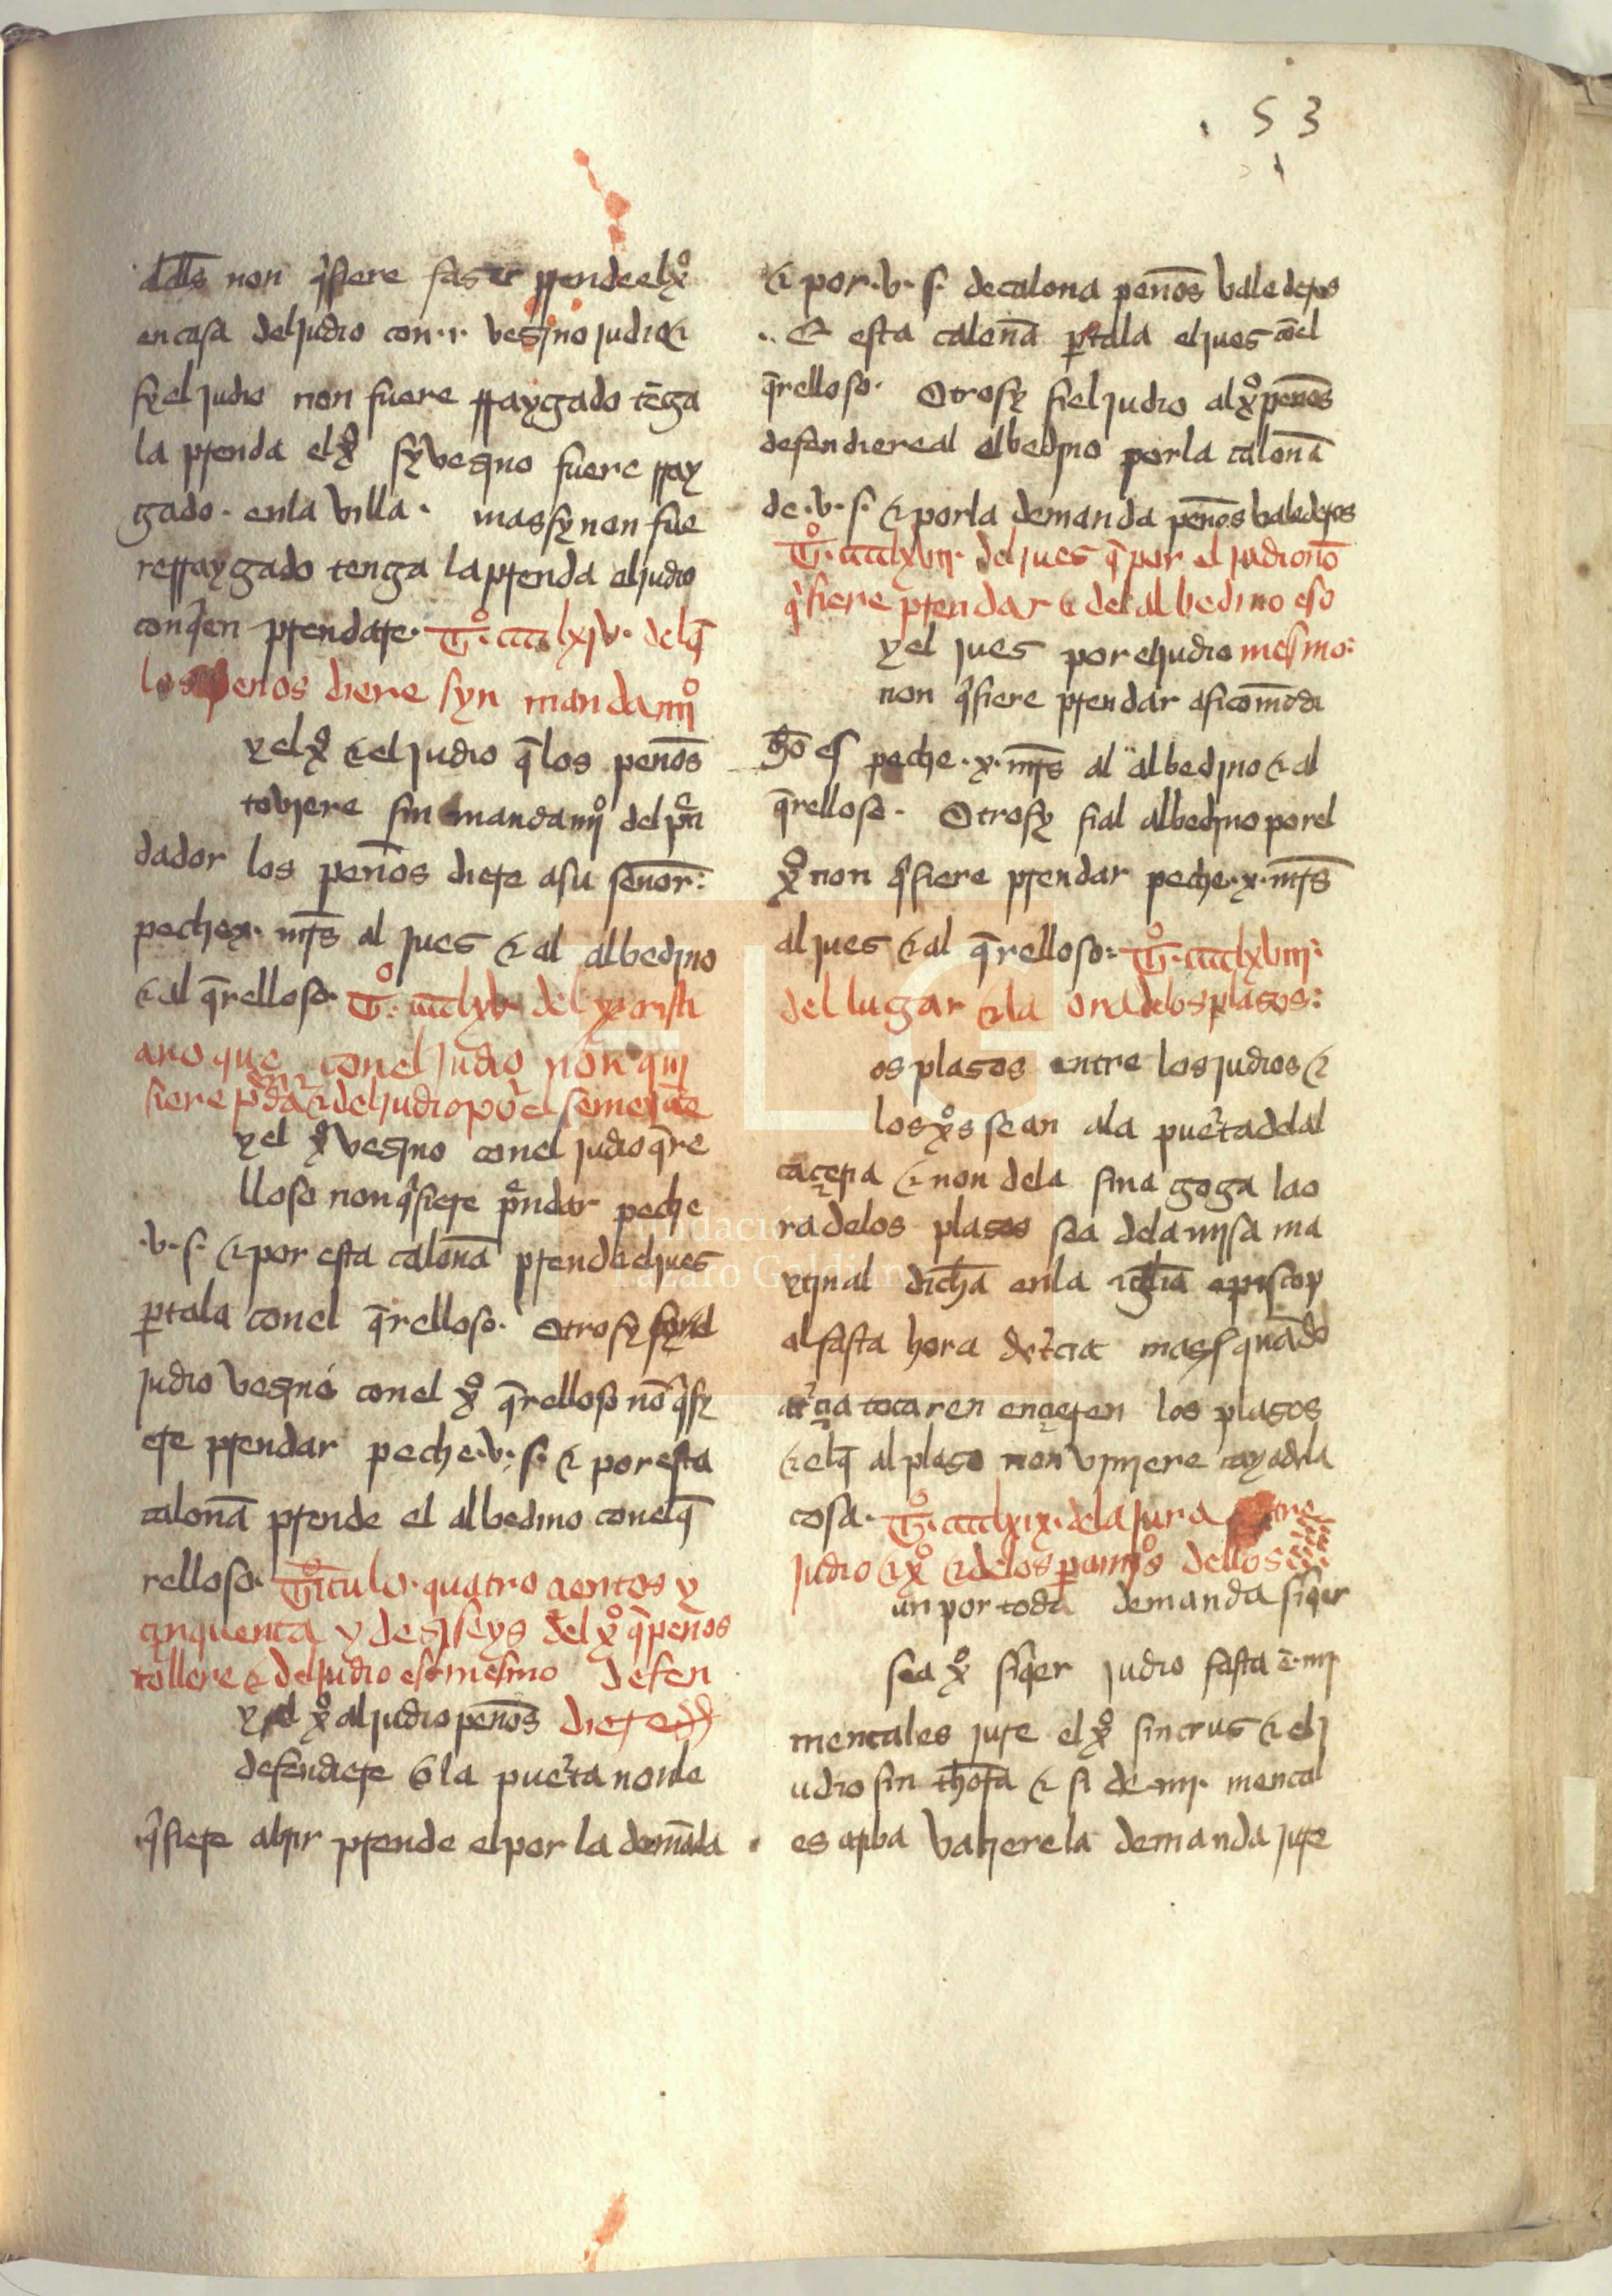 53
dellos non q̃siere faser pfende el xº
en casa del judio con .i. vesjno judio ⁊
sy el judio non fuere rraygado tẽga
la pfenda el xº sy vesjno fuere rray
gado . en la villa . mas sy non fue
re rraygado tenga la pfenda el judio
con q̃en pfendare . Tº . cccc lxiv . del q̃
los penos diere syn mandamjº
y el xº ⁊ el judio q̃ los penõs
tovjere sin mandamjº del pñ
dador los penõs diere a su senõr :
peche x . mr̃s al jues ⁊ al albedjno
⁊ al q̃relloso . Tº . cccclxv . del xpristi
ano que con el judio non quj
siere pñdar ⁊ del judio por el semejãte
y el xº vesjno con el judio q̃re
lloso non q̃siere pñdar peche
. v . s . ⁊ por esta calonã pfende el jues
p̱tala con el q̃relloso . Otrosy sy el
judio vesjno con el xº q̃relloso nõ q̃sy
ere pfendar peche . v . s . ⁊ por esta
calonã pfende el albedino con el q̃
relloso . Titulo . quatro cientos y
cinquenta y desiseys del xº q̃ penõs
tollere ⁊ del judio eso mesmo defen
y el xº al judio penõs diere
defendiere o la puerta non le
q̃siere abrir pfende el por la demãda
⁊ por . v . s . de calona penõs valederos
.. E esta calonã p̱tala el jues cõ el
q̃relloso . Otrosy si el judio al xº penõs
defendiere al albedjno por la calonã
de . v . s . ⁊ por la demanda penõs valederos
Tº . cccclxvij . del jues q̃ por el judio nõ
q̃siere pfendar ⁊ del albedino eso
y el jues por el judio mesmo :
non q̃siere pfendar asi como di
cho es peche . x . mr̃s al albedjno ⁊ al
q̃relloso . Otrosy si al albedjno por el
xº non q̃siere pfendar peche . x . mr̃s
al jues ⁊ al q̃relloso : Tº . cccclxviij :
del lugar ⁊ la ora de los plasos :
os plasos entre los judios ⁊
los xºs sean a la puerta del al
caçeria ⁊ non de la sinagoga la o
ra de los plasos sea de la mjsa ma
ytjnal dichã en la iglia episcop
al fasta hora de tercia mas quãdo
a terçia tocaren en çeren los plasos
⁊ el q̃ al plaso non vinjere caya de la
cosa . Tº . cccclxix . de la jura entre
judio ⁊ xº ⁊ de los p̱amjºs dellos
un por toda demanda siq̃er
sea xº siq̃er judio fasta ẽ . iiij .
mencales jure el xº sin crus ⁊ el j
udio sin thora ⁊ si de . iiij . mencal
es arriba valiere la demanda jure